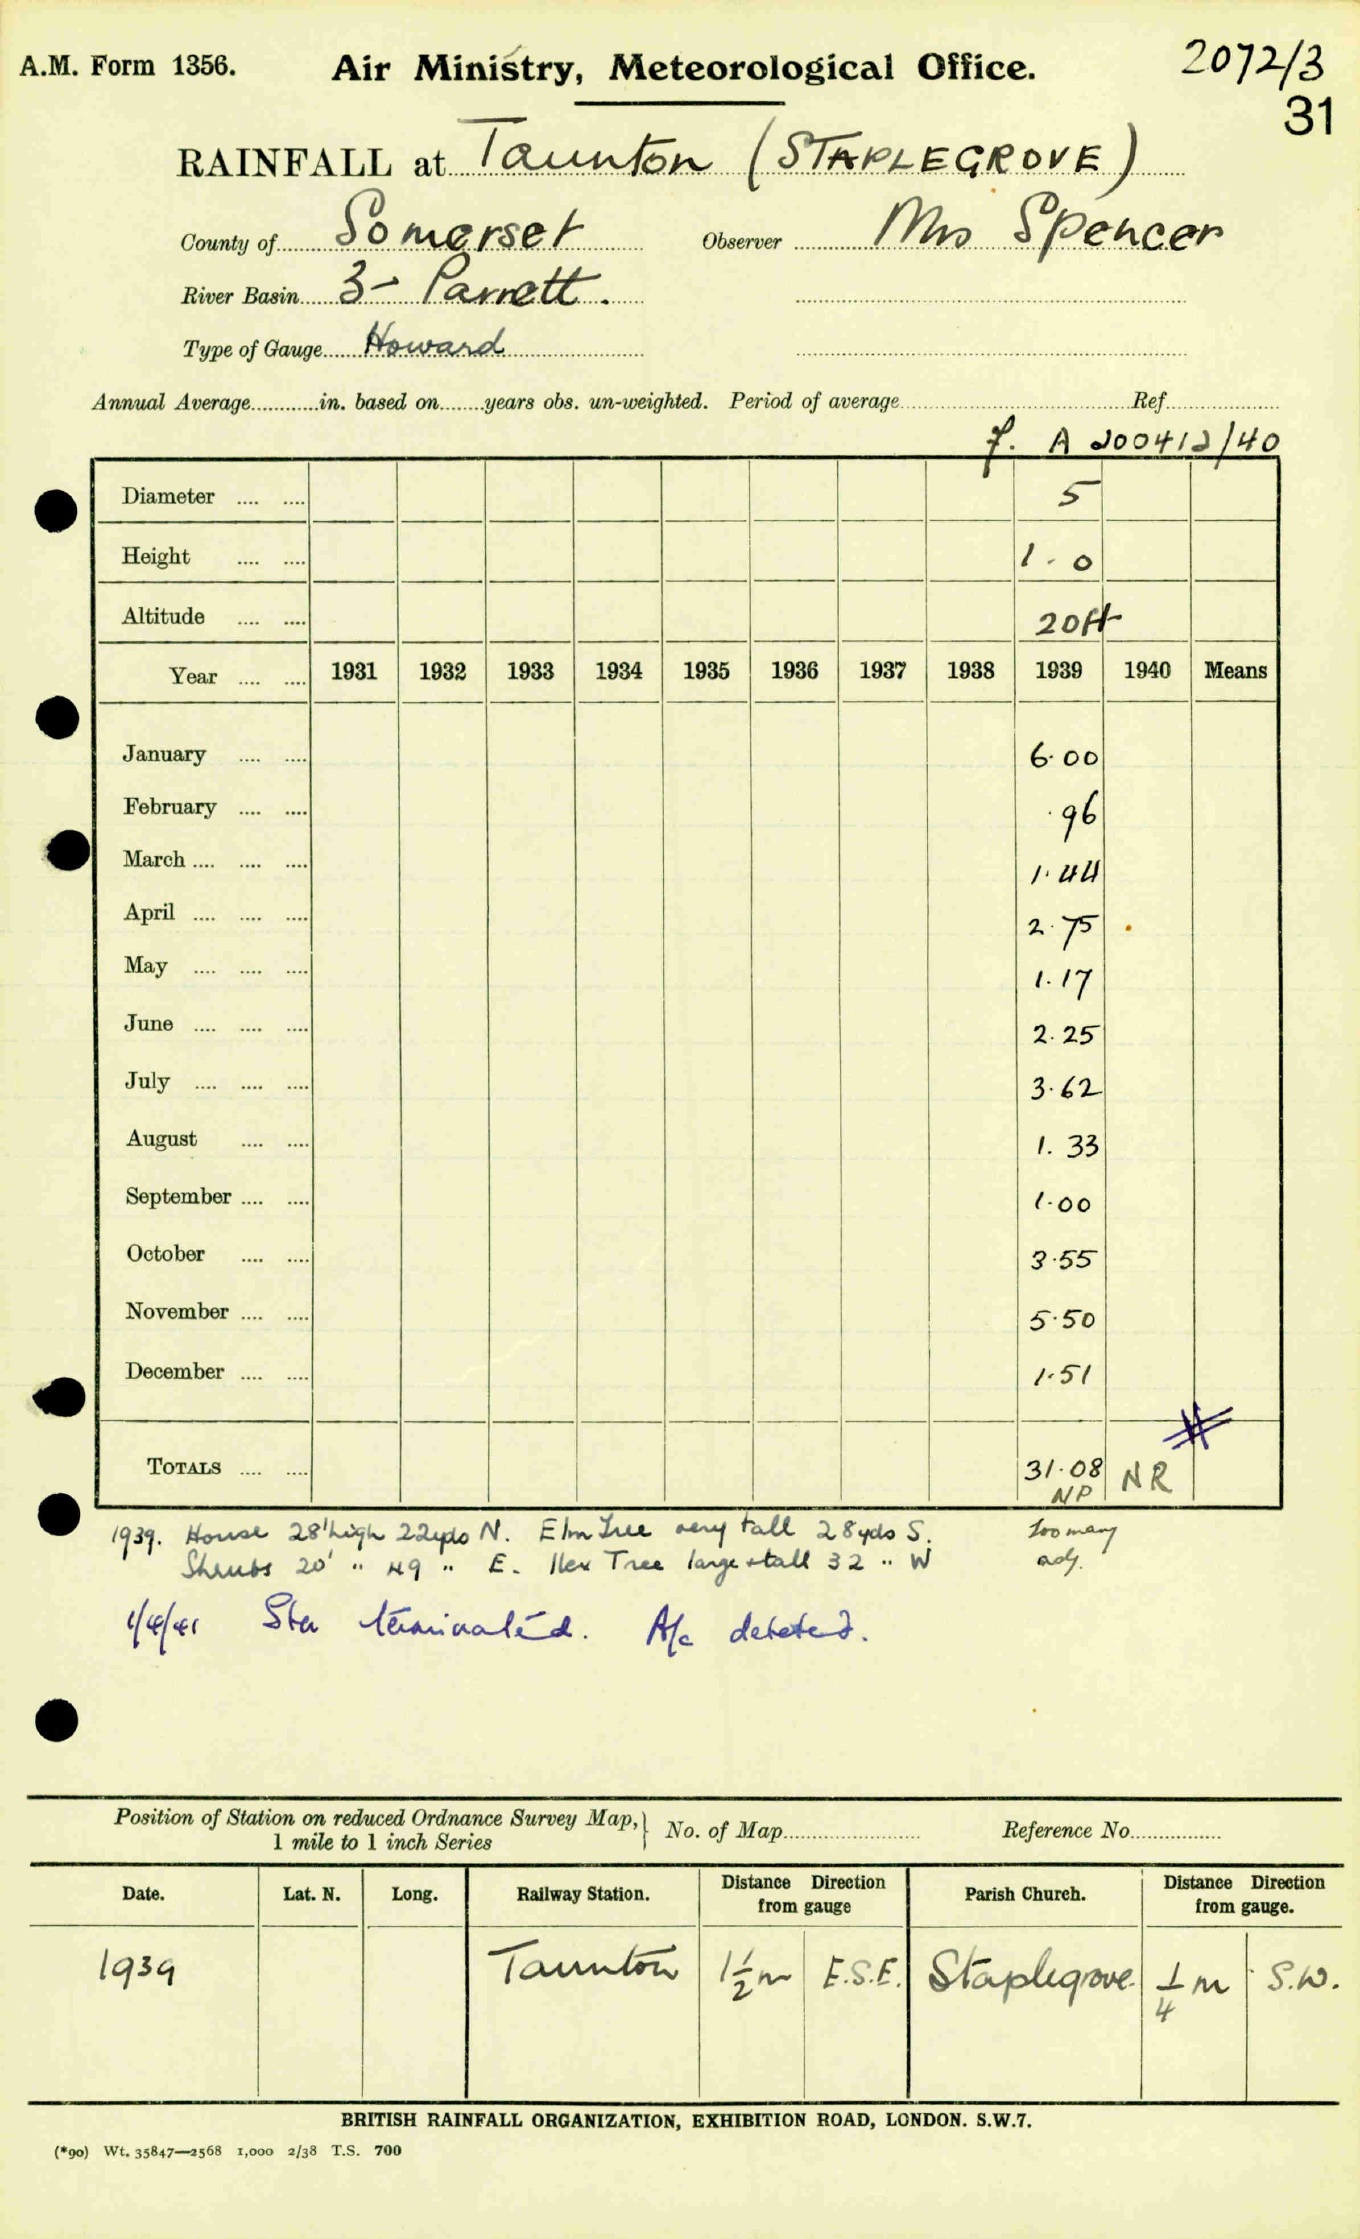 A.M. Form 1356. Air Ministry, Meteorological Office. 2072/3
31
RAINFALL at Taunton (STAPLEGROVE)
County of Somerset Observer Mrs Spencer
River Basin 3- Parrett.
Type of Gauge Howard
Annual Average............in. based on.......years obs. un-weighted. Period of average.......... Ref..........
f. A 200412/40
Diameter .... .... 5
Height .... .... 1-0
Altitude .... .... 20ft
Year .... .... 1931 1932 1933 1934 1935 1936 1937 1938 1939 1940 Means
January .... .... 6.00
February .... .... .96
March .... .... .... 1.44
April .... .... .... 2.75
May .... .... .... 1.17
June .... .... .... 2.25
July .... .... .... 3.62
August .... .... 1.33
September .... .... 1.00
October .... .... 3.55
November .... .... 5.50
December .... .... 1.51
TOTALS .... .... 31.08 NR
NP
1939. House 28' high 22yds N. Elm Tree very tall 28yds S. Too many
Shrubs 20' " 49 " E. Ilex Tree large & tall 32 " W adj.
1/4/41 Stn terminated. A/c deleted.
Position of Station on reduced Ordnance Survey Map, } No. of Map.......... Reference No..........
1 mile to 1 inch Series
Date. Lat. N. Long. Railway Station. Distance Direction from gauge Parish Church. Distance Direction from gauge.
1939 Taunton 1½m E.S.E. Staplegrove ¼m S.W.
BRITISH RAINFALL ORGANIZATION, EXHIBITION ROAD, LONDON. S.W.7.
(*90) Wt. 35847—2568 1,000 2/38 T.S. 700